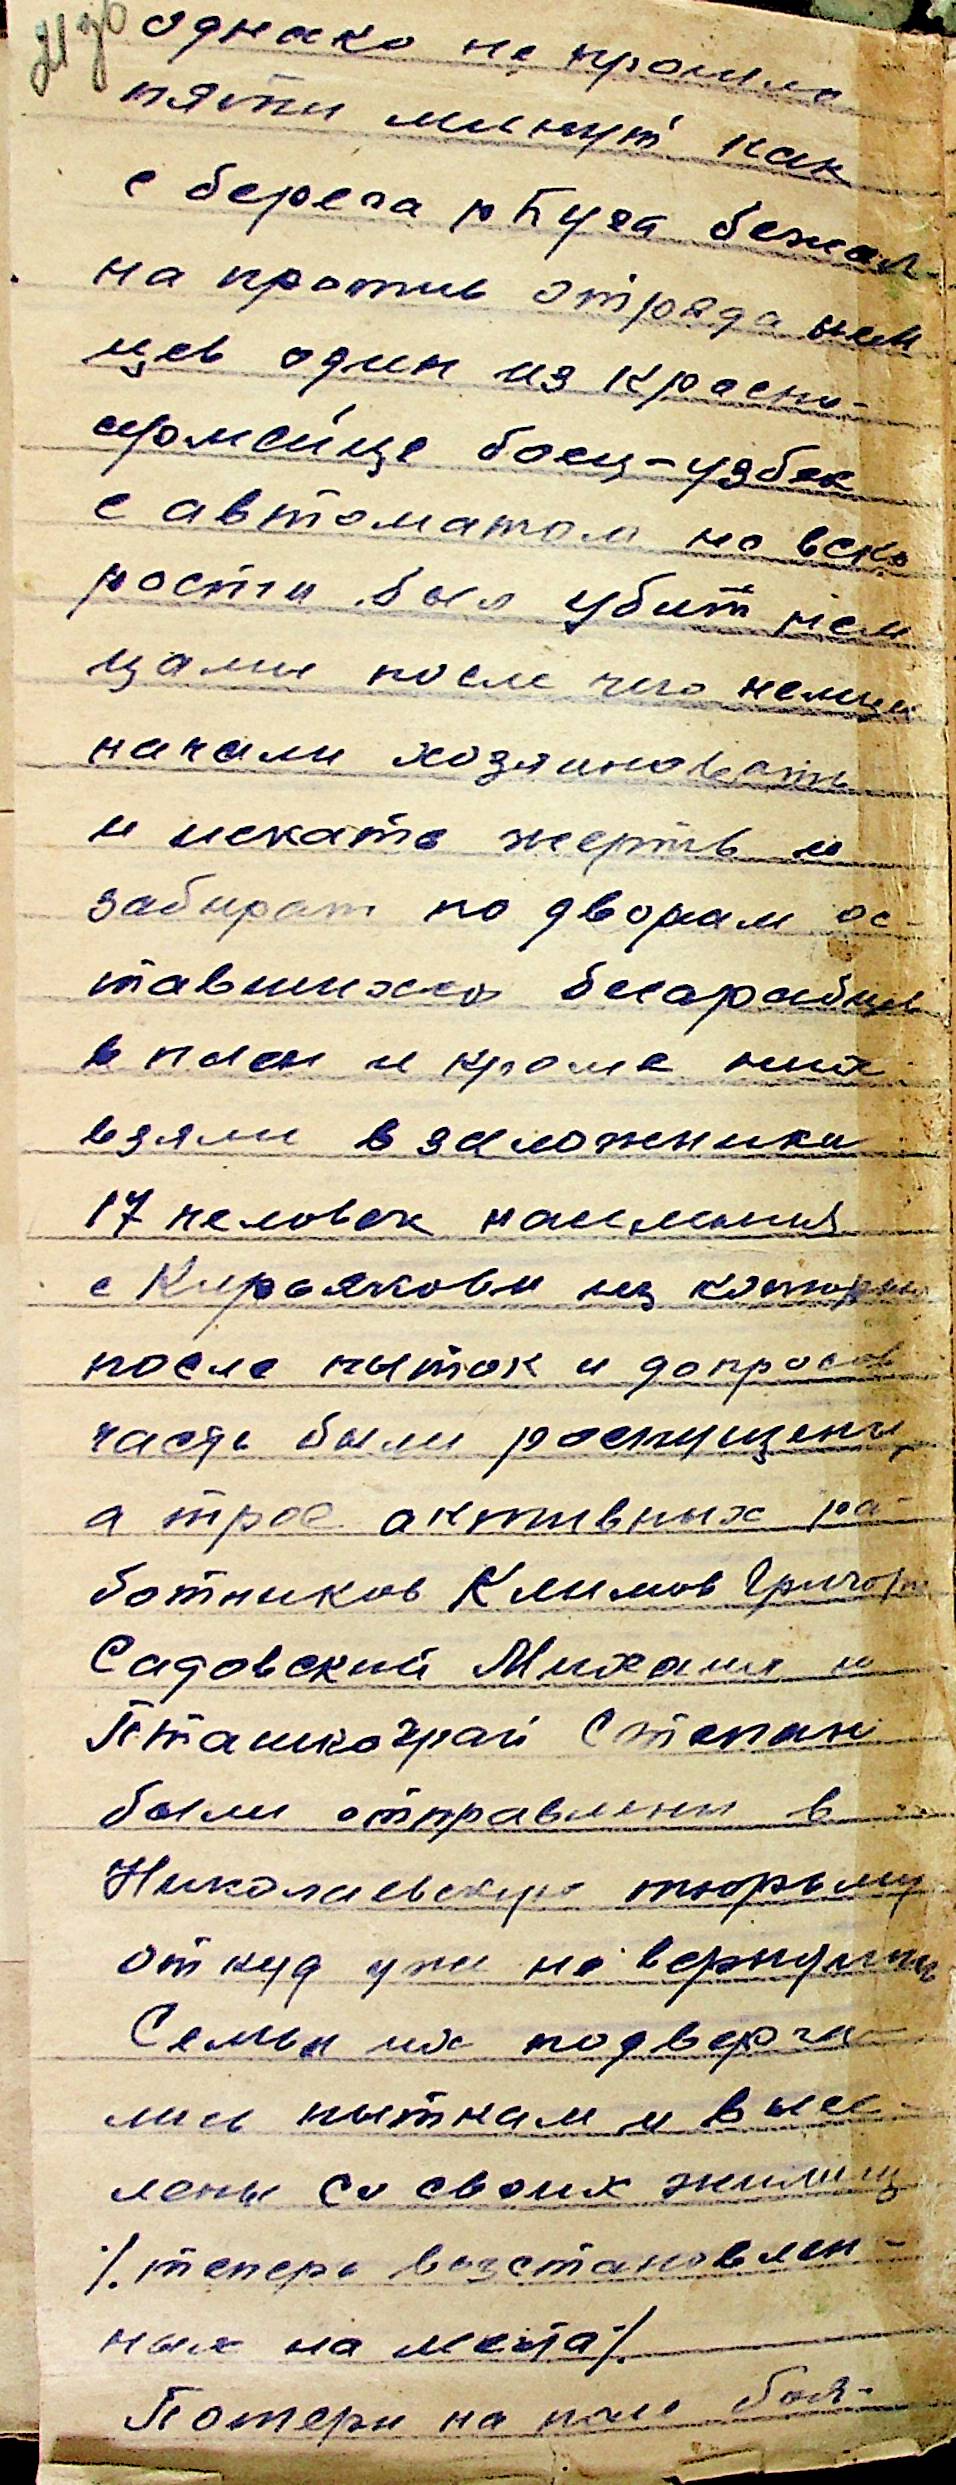 21 зв
однако не прошло
пяти минут как
с берега р Буга бежал
на против отряда нем
цев один из красно-
армейце боец-узбек
с автоматом но вско
рости был убит нем
цами после чего немцы
начали хозяиновать
и искать жертв и
забират по дворам ос-
тавшихся бесарабцев
в плен и кроме них
взяли в заложники
17 человек населения
с Кирьяковки из которых
после пыток и допросов
часть были роспущены,
а трое активных ра-
ботников Климов Григор
Садовский Михаил и
Пташкограй Степан
были отправлени в
Николаевскую тюрьму
от куд уже не вернулись
Семьи их подверга-
лись пыткам и высе-
лены со своих жилищ
/.теперь возстановлен-
ных на места/.
Потери на поле боя-